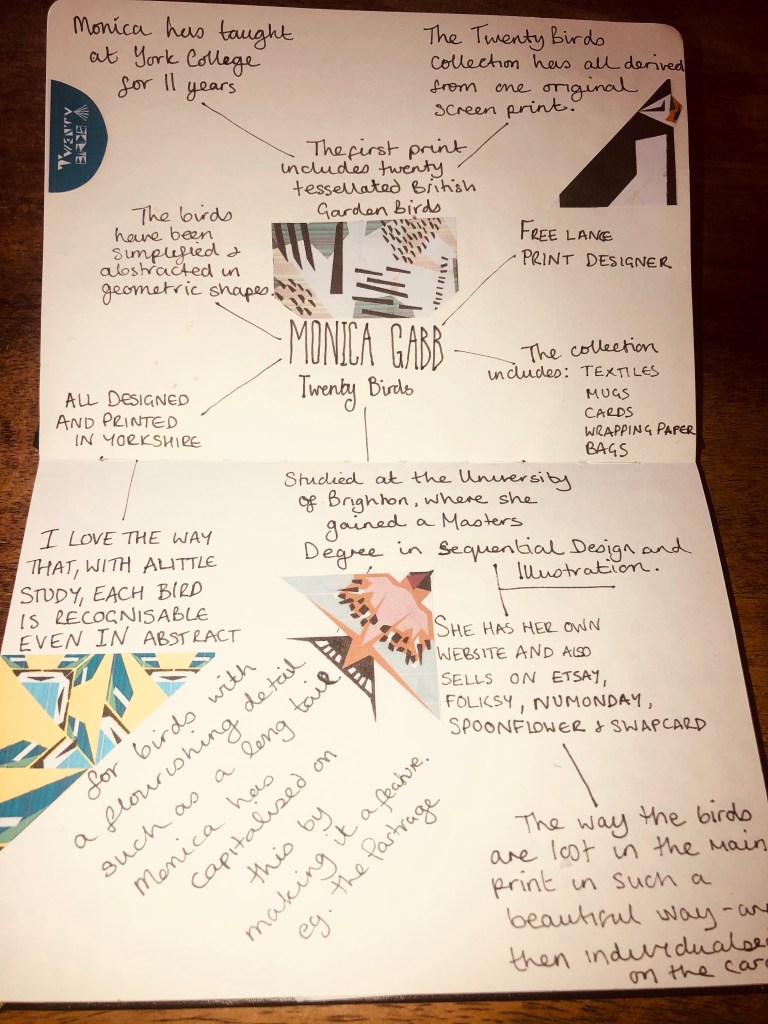 Monica has taught
at York College
for 11 years
The Twenty Birds
collection has all derived
from one original
screen print.
TWENTY
BIRDS
The first print
includes twenty
tessellated British
Garden Birds
The birds
have been
simplified &
abstracted in
geometric shapes.
FREE LANE
PRINT DESIGNER
MONICA GABB
Twenty Birds
The collection
includes: TEXTILES
MUGS
CARDS
WRAPPING PAPER
BAGS
ALL DESIGNED
AND PRINTED
IN YORKSHIRE
Studied at the University
of Brighton, where she
gained a Masters
Degree in Sequential Design and
Illustration.
I LOVE THE WAY
THAT, WITH A LITTLE
STUDY, EACH BIRD
IS RECOGNISABLE
EVEN IN ABSTRACT
SHE HAS HER OWN
WEBSITE AND ALSO
SELLS ON ETSAY,
FOLKSY, NUMONDAY,
SPOONFLOWER & SWAPCARD
for birds with
a flourishing detail
such as a long tail
Monica has
capitalised on
this by
making it a feature.
eg. the Partrage
The way the birds
are lost in the main
print in such a
beautiful way - an
then individualise
on the car